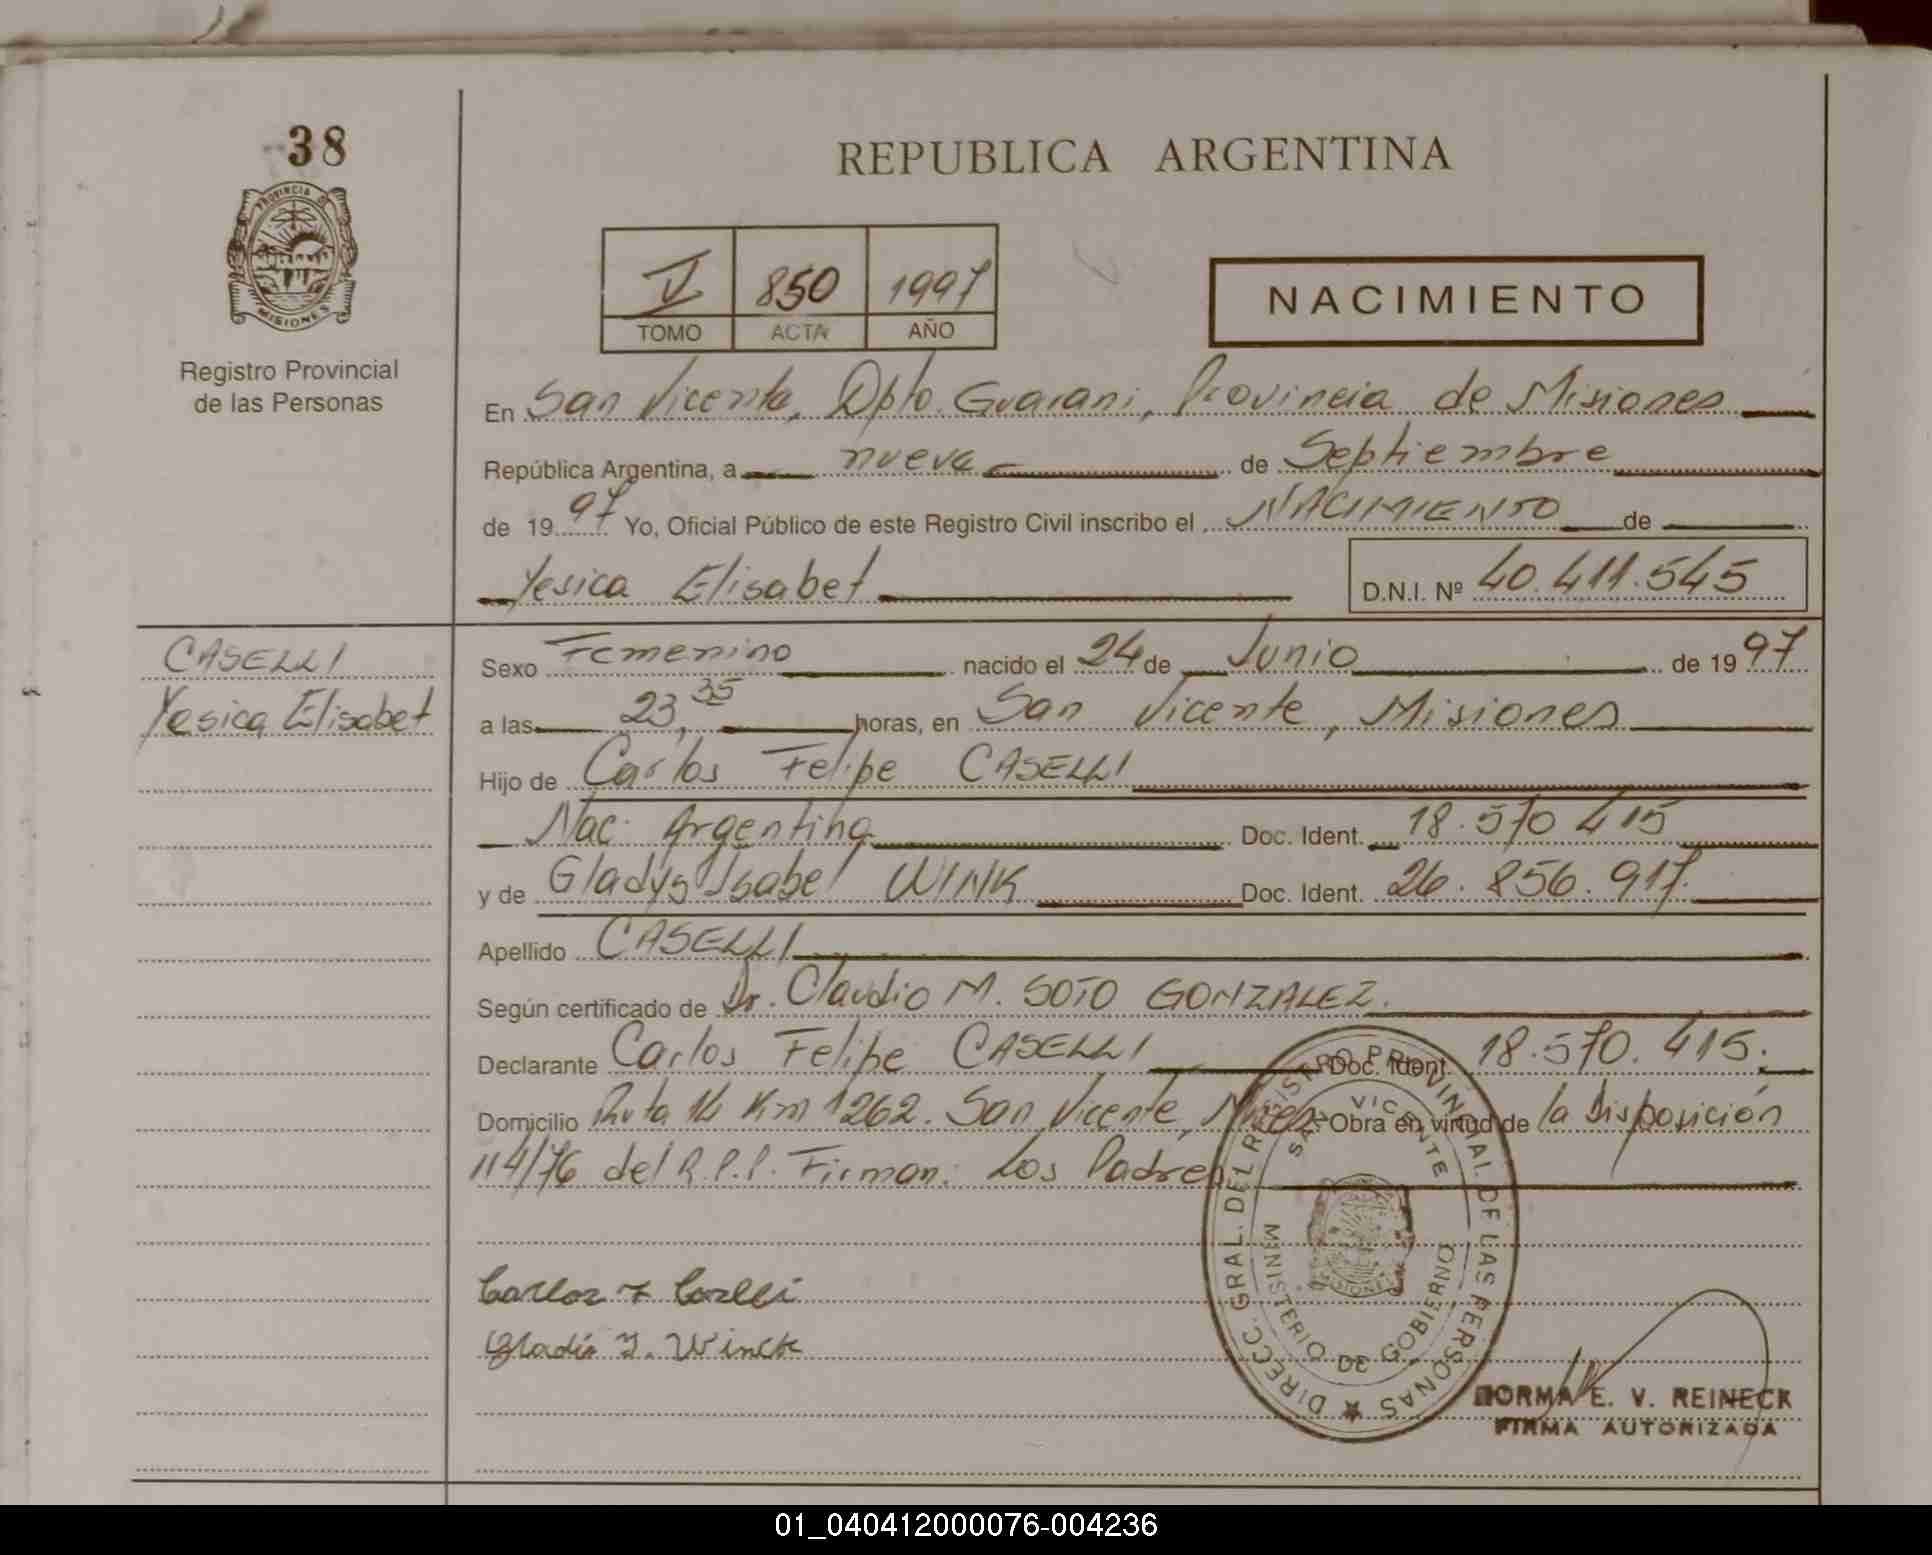 38
PROVINCIA DE
MISIONES
Registro Provincial
de las Personas
REPUBLICA ARGENTINA
V 850 1997
TOMO ACTA AÑO
NACIMIENTO
En San Vicente, Dpto. Guarani, Provincia de Misiones
República Argentina, a nueve de Septiembre
de 1997 Yo, Oficial Público de este Registro Civil inscribo el NACIMIENTO de
Yesica Elisabet D.N.I. Nº 40.411.545
CASELLI
Yesica Elisabet
Sexo Femenino nacido el 24 de Junio de 1997
a las 23,35 horas, en San Vicente, Misiones
Hijo de Carlos Felipe CASELLI
Nac. Argentina Doc. Ident. 18.570 415
y de Gladys Isabel WINK Doc. Ident. 26.856.917.
Apellido CASELLI
Según certificado de Dr. Claudio M. SOTO GONZALEZ.
Declarante Carlos Felipe CASELLI Doc. Ident. 18.570.415.
Domicilio Ruta 14 Km 1262. San Vicente, Mnes. Obra en virtud de la disposición
114/76 del R.P.P. Firman: Los Padres
DIRECC. GRAL. DEL REGISTRO PROVINCIAL DE LAS PERSONAS
SAN VICENTE
MINISTERIO DE GOBIERNO
MISIONES
Carlos F Caselli
Gladis I. Winck
NORMA E. V. REINECK
FIRMA AUTORIZADA
01_040412000076-004236